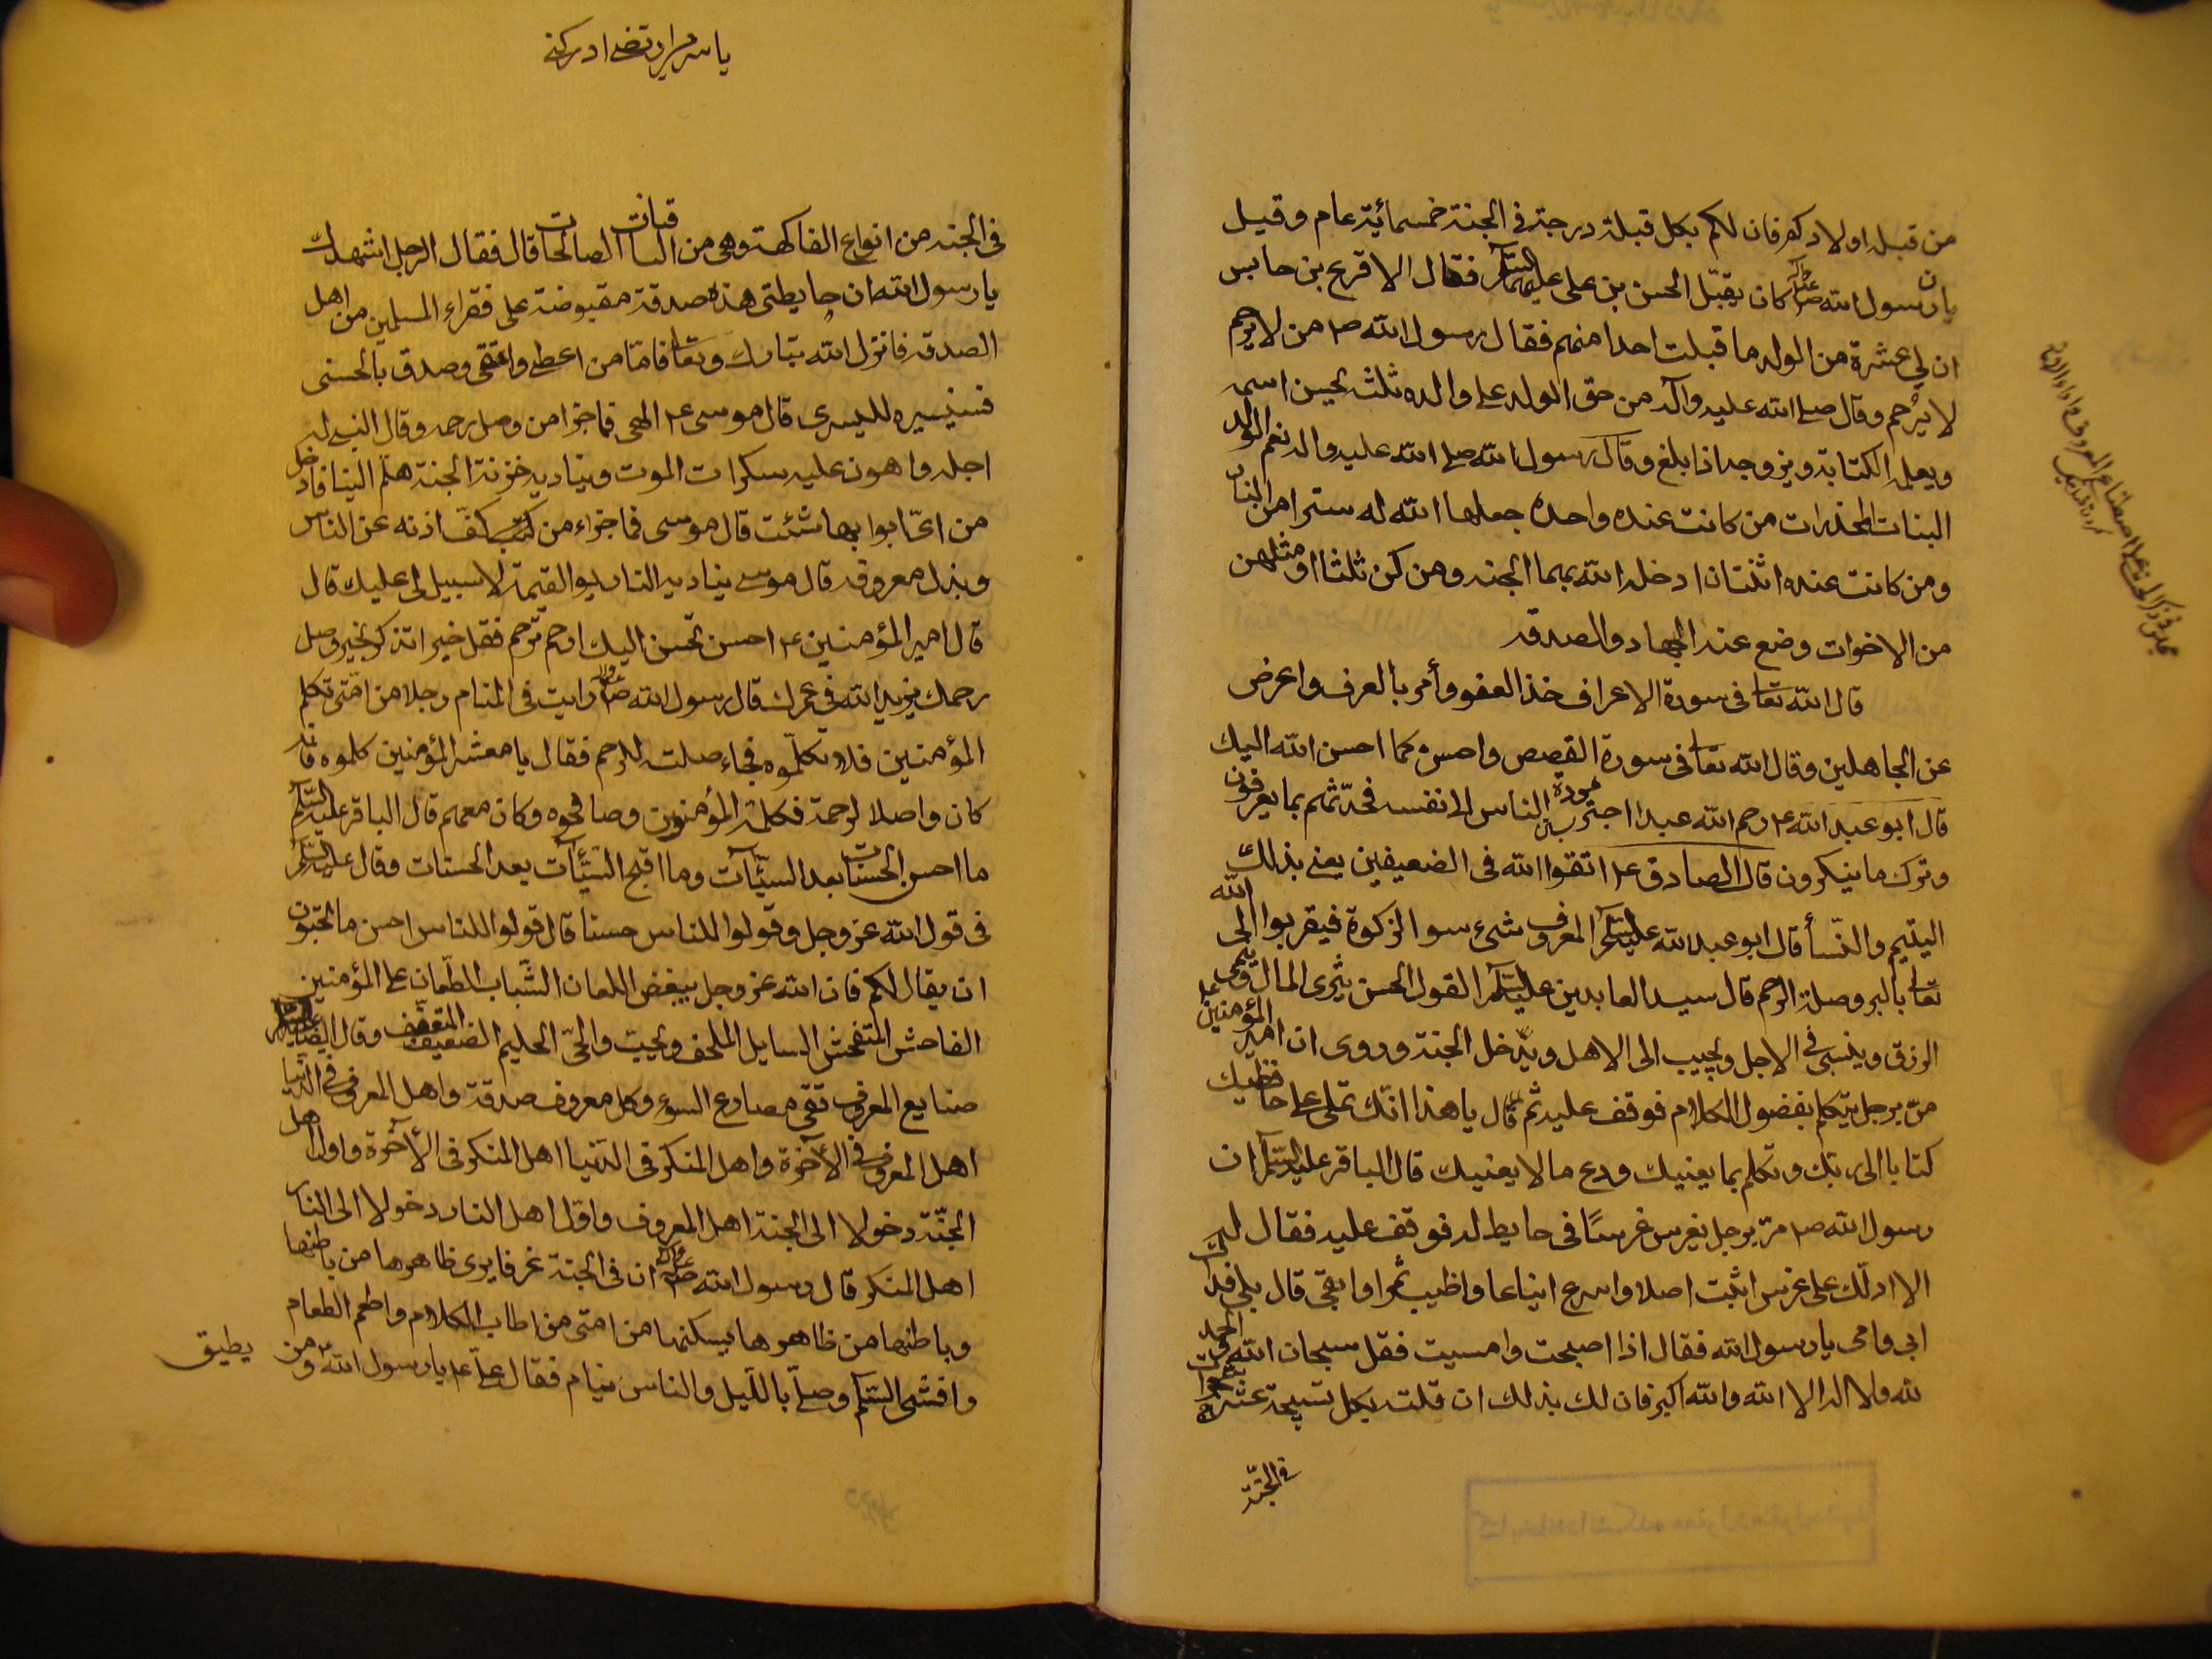 من قبله اولادكم فان لكم بكل قبلة درجة في الجنة خمسمائية عام وقيل
يان رسول الله صلى الله عليه واله كان يقبّل الحسن بن على عليهما السلم فقال الاقرع بن حابس
ان لى عشرة من الولد ما قبلت احدا منهم فقال رسول الله ص من لا يرحم
لا يُرحم وقال صلى الله عليه وآله من حق الولد على والده ثلث يحسن اسمه
ويعلمه الكتابة ويزوجه اذا بلغ وقال رسول الله صلى الله عليه واله نعم الولد
البنات المخدرات من كانت عنده واحدة جعلها الله له سترا من النار
ومن كانت عنده اثنتان ادخله الله بهما الجنه ومن كن ثلثا او مثلهن
من الاخوات وضع عنه الجهاد والصدقه
قال الله تعالى فى سورة الاعراف خذ العفو وأمر بالعرف واعرض
عن الجاهلين وقال الله تعالى فى سورة القصص واحسن كما احسن الله اليك
قال ابو عبد الله ع رحم الله عبدا اجتر مودة الناس الى نفسه فحدّثهم بما يعرفون
وترك ما ينكرون قال الصادق ع اتقوا الله فى الضعيفين يعنى بذلك
اليتيم والنّسأ قال ابو عبد الله عليه السلم المعروف شىء سوا الزكوة فيقربوا الى الله
تعالى بالبر وصلة الرحم قال سيد العابدين عليه السلم القول الحسن يثرى المال وينمى
الرزق وينسى فى الاجل ويحبب الى الاهل ويدخل الجنة وروى ان امير المؤمنين ع
مرّ برجل يتكلم بفضول الكلام فوقف عليه ثم قال يا هذا انك تملى على حافظيك
كتابا الى ربك وتكلم بما يعنيك ودع ما لا يعنيك قال الباقر عليه السلم ان
رسول الله ص مرّ برجل يغرس غرسًا فى حايط له فوقف عليه فقال له
الا ادلّك على غرس اثبت اصلا واسرع ايناعا واطيب ثمرا وابقى قال بلى فداك
ابى وامى يا رسول الله فقال اذا اصبحت وامسيت فقل سبحان الله والحمد
لله ولا اله الا الله والله اكبر فان لك بذلك ان قلت بكل تسبيحة عشر شجرات
فى الجنّة
فى الجنه من انواع الفاكهة وهى من الباقيات الصالحات قال فقال الرجل اشهدك
يا رسول الله ان حايطى هذه صدقة مقبوضة على فقراء المسلمين من اهل
الصدقه فانزل الله تبارك وتعالى فامّا من اعطى واتقى وصدق بالحسنى
فسنيسره لليسرى قال موسى ع الهى فما جزا من وصل رحمه وقال انسى له
اجله واهون عليه سكرات الموت ويناديه خزنة الجنة هلّم الينا فادخل
من اىّ ابوابها شئت قال موسى فما جزاء من كفّ اذنه عن الناس
وبذل معروفه قال موسى يناديه النار يوم القيمة لا سبيل لى عليك قال
قال امير المؤمنين ع احسن تحسن اليك ارحم ترحم فقل خيرا تذكر بخير وصل
رحمك يزيد الله فى عمرك قال رسول الله صلى الله عليه واله رايت فى المنام رجلا من امّتى تكلم
المؤمنين فلا تكلّموه فجاء صلته للرحم فقال يا معشر المؤمنين كلموه فانه
كان واصلا لرحمة فكلمه المؤمنون وصافحوه وكان معهم قال الباقر عليه السلم
ما احسن الحسنات بعد السيّئآت وما اقبح السّيئآت بعد الحسنات وقال عليه السلم
فى قول الله عز وجل وقولوا للناس حسنا قال قولوا للناس احسن ما تحبّون
ان يقال لكم فان الله عز وجل يبغض اللعان السّباب الطّعان على المؤمنين
الفاحش المتفحش السايل الملحف ويحبّ والحىّ الحليم الضعيف المتعفف وقال ايضا عليه السلم
صنايع المعروف تقى مصارع السوء وكل معروف صدقة واهل المعروف فى الدّنيا
اهل المعروف فى الآخرة واهل المنكر فى الدّنيا اهل المنكر فى الآخرة واول اهل
الجنّة دخولا الى الجنة اهل المعروف واوّل اهل النار دخولا الى النار
اهل المنكر قال رسول الله صلى الله عليه واله ان فى الجنة غرفا يرى ظاهرها من باطنها
وباطنها من ظاهرها يسكنها من امتى من اطاب الكلام واطعم الطعام
وافشى السّلم وصلّ بالليل والناس نيام فقال على ع يا رسول الله ومن
يطيق